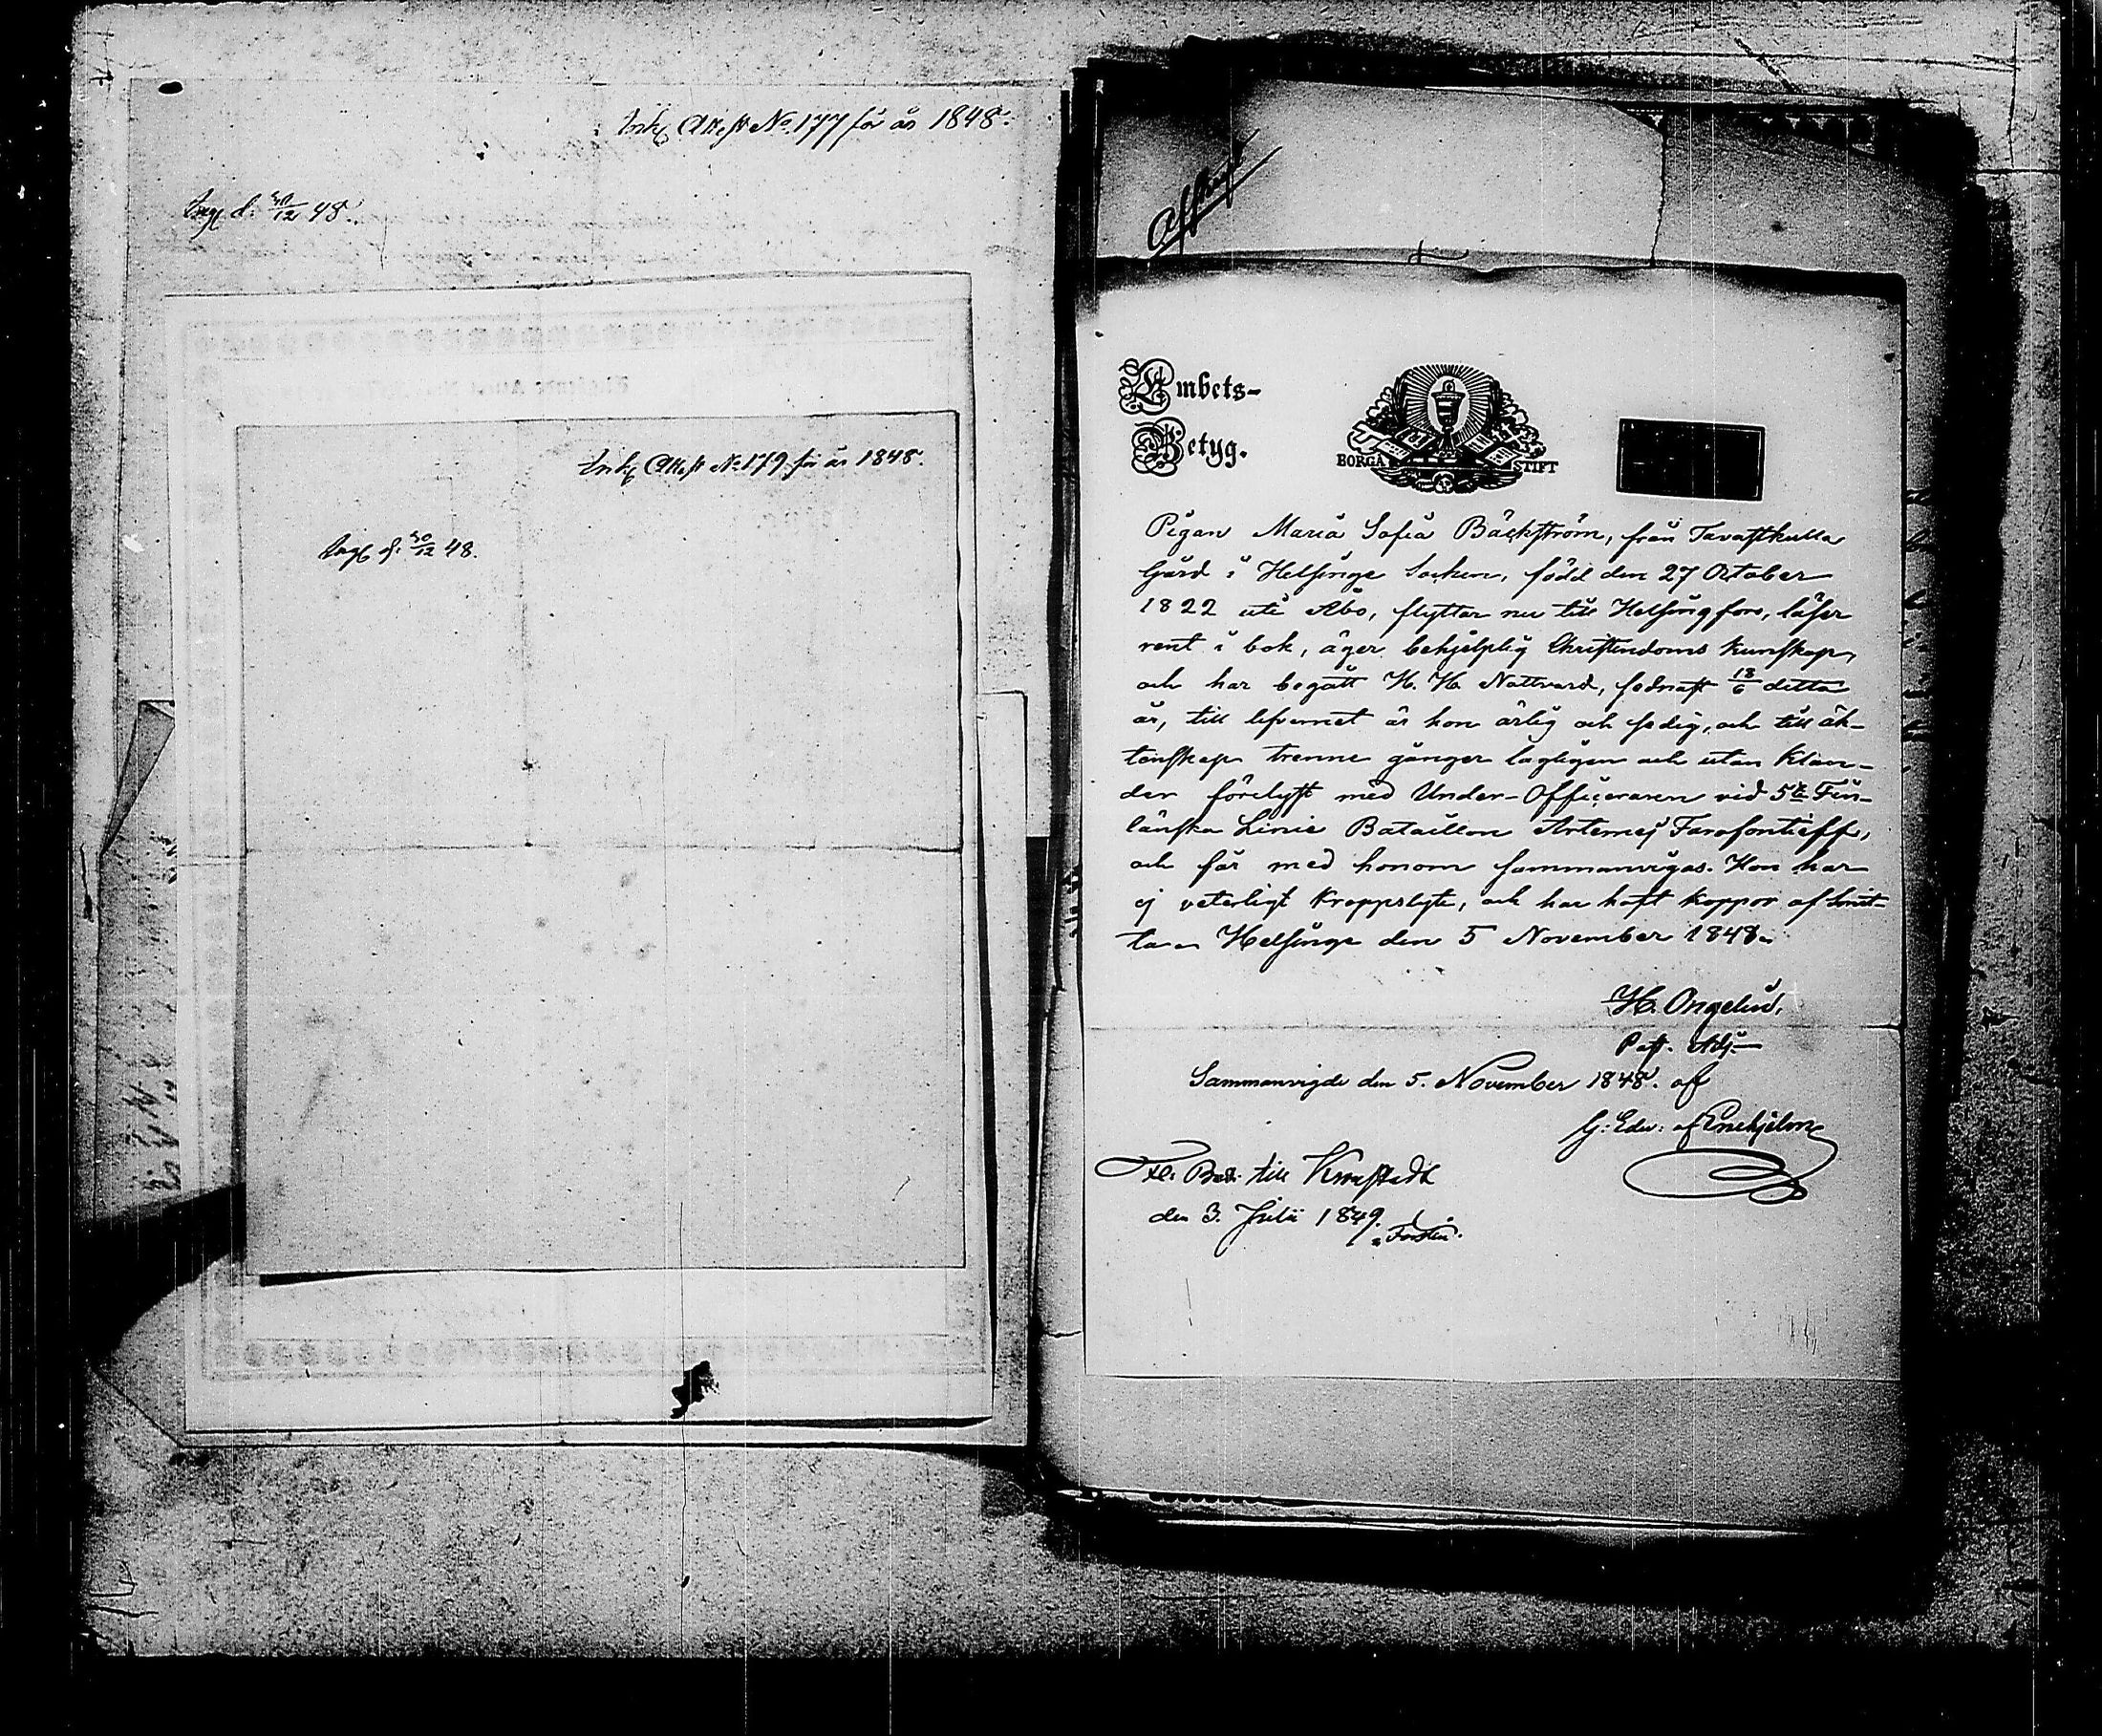 Ink. Attest No. 177 för år 1848.
Ing. d. 30/12 48.
Ink. Attest No 179 för år 1848.
Ing. d. 30/12 48.
Embets-
Betyg.
BORGÅ STIFT
Pigan Maria Sofia Bäckström, från Tavastkulla
Gård i Helsinge Socken, född den 27 October
1822 uti Åbo, flyttar nu till Helsingfors, läser
rent i bok, äger behjelplig Christendoms kunskap,
och har begått H. H. Nattvard, sednast 18/6 detta
år, till lefvernet är hon ärlig och sedig, och till äk-
tenskap trenne gånger lagligen och utan klan-
der förelyst med Under-Officeraren vid 5te Fin-
länska Linie Bataillon Artemej Farafontieff,
och får med honom sammanvigas. Hon har
ej veterligt kroppslyte, och har haft koppor af smit-
ta. Helsinge den 5 November 1848.
H. Ongelin,
Past. Adj.
Sammanvigde den 5. November 1848. af
G. Edv. af Enehjelm
till Kronstadt
den 3. Julii 1849.
Forstén.